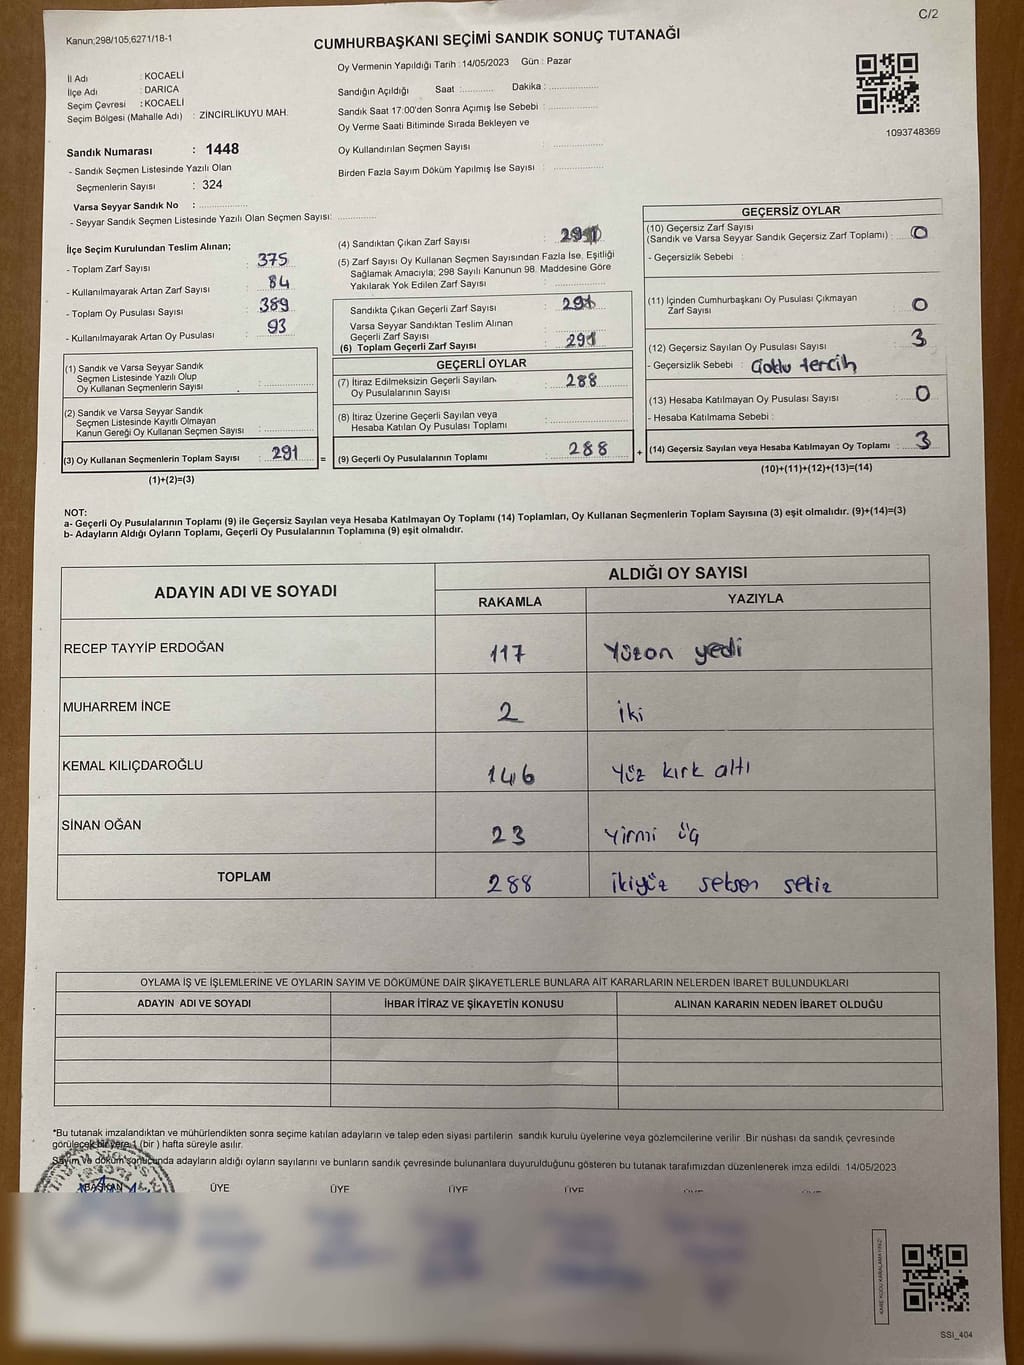 C/2
Kanun;298/105,6271/18-1
CUMHURBAŞKANI SEÇİMİ SANDIK SONUÇ TUTANAĞI
İl Adı : KOCAELİ
İlçe Adı : DARICA
Seçim Çevresi : KOCAELİ
Seçim Bölgesi (Mahalle Adı) : ZİNCİRLİKUYU MAH.
Sandık Numarası : 1448
- Sandık Seçmen Listesinde Yazılı Olan
Seçmenlerin Sayısı : 324
Varsa Seyyar Sandık No :
- Seyyar Sandık Seçmen Listesinde Yazılı Olan Seçmen Sayısı:
Oy Vermenin Yapıldığı Tarih : 14/05/2023 Gün : Pazar
Sandığın Açıldığı Saat : Dakika :
Sandık Saat 17:00'den Sonra Açımış İse Sebebi :
Oy Verme Saati Bitiminde Sırada Bekleyen ve
Oy Kullandırılan Seçmen Sayısı :
Birden Fazla Sayım Döküm Yapılmış İse Sayısı :
1093748369
İlçe Seçim Kurulundan Teslim Alınan;
- Toplam Zarf Sayısı : 375
- Kullanılmayarak Artan Zarf Sayısı : 84
- Toplam Oy Pusulası Sayısı : 389
- Kullanılmayarak Artan Oy Pusulası : 93
(1) Sandık ve Varsa Seyyar Sandık
Seçmen Listesinde Yazılı Olup
Oy Kullanan Seçmenlerin Sayısı :
(2) Sandık ve Varsa Seyyar Sandık
Seçmen Listesinde Kayıtlı Olmayan
Kanun Gereği Oy Kullanan Seçmen Sayısı :
(3) Oy Kullanan Seçmenlerin Toplam Sayısı : 291 =
(1)+(2)=(3)
(4) Sandıktan Çıkan Zarf Sayısı :
(5) Zarf Sayısı Oy Kullanan Seçmen Sayısından Fazla İse, Eşitliği
Sağlamak Amacıyla; 298 Sayılı Kanunun 98. Maddesine Göre
Yakılarak Yok Edilen Zarf Sayısı :
Sandıkta Çıkan Geçerli Zarf Sayısı : 291
Varsa Seyyar Sandıktan Teslim Alınan
Geçerli Zarf Sayısı :
(6) Toplam Geçerli Zarf Sayısı : 291
GEÇERLİ OYLAR
(7) İtiraz Edilmeksizin Geçerli Sayılan,
Oy Pusulalarının Sayısı : 288
(8) İtiraz Üzerine Geçerli Sayılan veya
Hesaba Katılan Oy Pusulası Toplamı :
(9) Geçerli Oy Pusulalarının Toplamı : 288 +
GEÇERSİZ OYLAR
(10) Geçersiz Zarf Sayısı
(Sandık ve Varsa Seyyar Sandık Geçersiz Zarf Toplamı) : 0
- Geçersizlik Sebebi :
(11) İçinden Cumhurbaşkanı Oy Pusulası Çıkmayan
Zarf Sayısı : 0
(12) Geçersiz Sayılan Oy Pusulası Sayısı : 3
- Geçersizlik Sebebi : Çoklu tercih
(13) Hesaba Katılmayan Oy Pusulası Sayısı : 0
- Hesaba Katılmama Sebebi :
(14) Geçersiz Sayılan veya Hesaba Katılmayan Oy Toplamı : 3
(10)+(11)+(12)+(13)=(14)
NOT:
a- Geçerli Oy Pusulalarının Toplamı (9) ile Geçersiz Sayılan veya Hesaba Katılmayan Oy Toplamı (14) Toplamları, Oy Kullanan Seçmenlerin Toplam Sayısına (3) eşit olmalıdır. (9)+(14)=(3)
b- Adayların Aldığı Oyların Toplamı, Geçerli Oy Pusulalarının Toplamına (9) eşit olmalıdır.
ADAYIN ADI VE SOYADI ALDIĞI OY SAYISI
RAKAMLA YAZIYLA
RECEP TAYYİP ERDOĞAN 117 Yüzon yedi
MUHARREM İNCE 2 iki
KEMAL KILIÇDAROĞLU 146 Yüz kırk altı
SİNAN OĞAN 23 Yirmi üç
TOPLAM 288 ikiyüz seksen sekiz
OYLAMA İŞ VE İŞLEMLERİNE VE OYLARIN SAYIM VE DÖKÜMÜNE DAİR ŞİKAYETLERLE BUNLARA AİT KARARLARIN NELERDEN İBARET BULUNDUKLARI
ADAYIN ADI VE SOYADI İHBAR İTİRAZ VE ŞİKAYETİN KONUSU ALINAN KARARIN NEDEN İBARET OLDUĞU
*Bu tutanak imzalandıktan ve mühürlendikten sonra seçime katılan adayların ve talep eden siyasi partilerin sandık kurulu üyelerine veya gözlemcilerine verilir .Bir nüshası da sandık çevresinde
görülecek bir yere 1 (bir ) hafta süreyle asılır.
Sayım ve döküm sonucunda adayların aldığı oyların sayılarını ve bunların sandık çevresinde bulunanlara duyurulduğunu gösteren bu tutanak tarafımızdan düzenlenerek imza edildi 14/05/2023
BAŞKAN ÜYE ÜYE ÜYE ÜYE
KARE KODU KARALAMAYINIZ!
SSİ_404